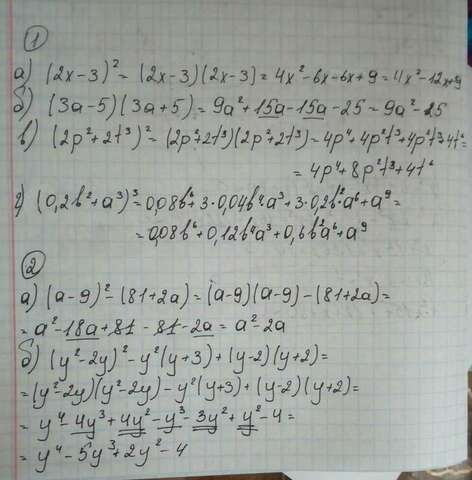 1
а) (2x-3)² = (2x-3)(2x-3) = 4x² - 6x - 6x + 9 = 4x² - 12x + 9
б) (3a-5)(3a+5) = 9a² + 15a - 15a - 25 = 9a² - 25
в) (2p²+2t³)² = (2p²+2t³)(2p²+2t³) = 4p⁴ + 4p²t³ + 4p²t³ + 4t⁶ =
= 4p⁴ + 8p²t³ + 4t⁶
г) (0,2b²+a³)³ = 0,08b⁶ + 3·0,04b⁴a³ + 3·0,2b²·a⁶ + a⁹ =
= 0,08b⁶ + 0,12b⁴a³ + 0,6b²a⁶ + a⁹
2
а) (a-9)² - (81+2a) = (a-9)(a-9) - (81+2a) =
= a² - 18a + 81 - 81 - 2a = a² - 2a
б) (y²-2y)² - y²(y+3) + (y-2)(y+2) =
= (y²-2y)(y²-2y) - y²(y+3) + (y-2)(y+2) =
= y⁴ - 4y³ + 4y² - y³ - 3y² + y² - 4 =
= y⁴ - 5y³ + 2y² - 4